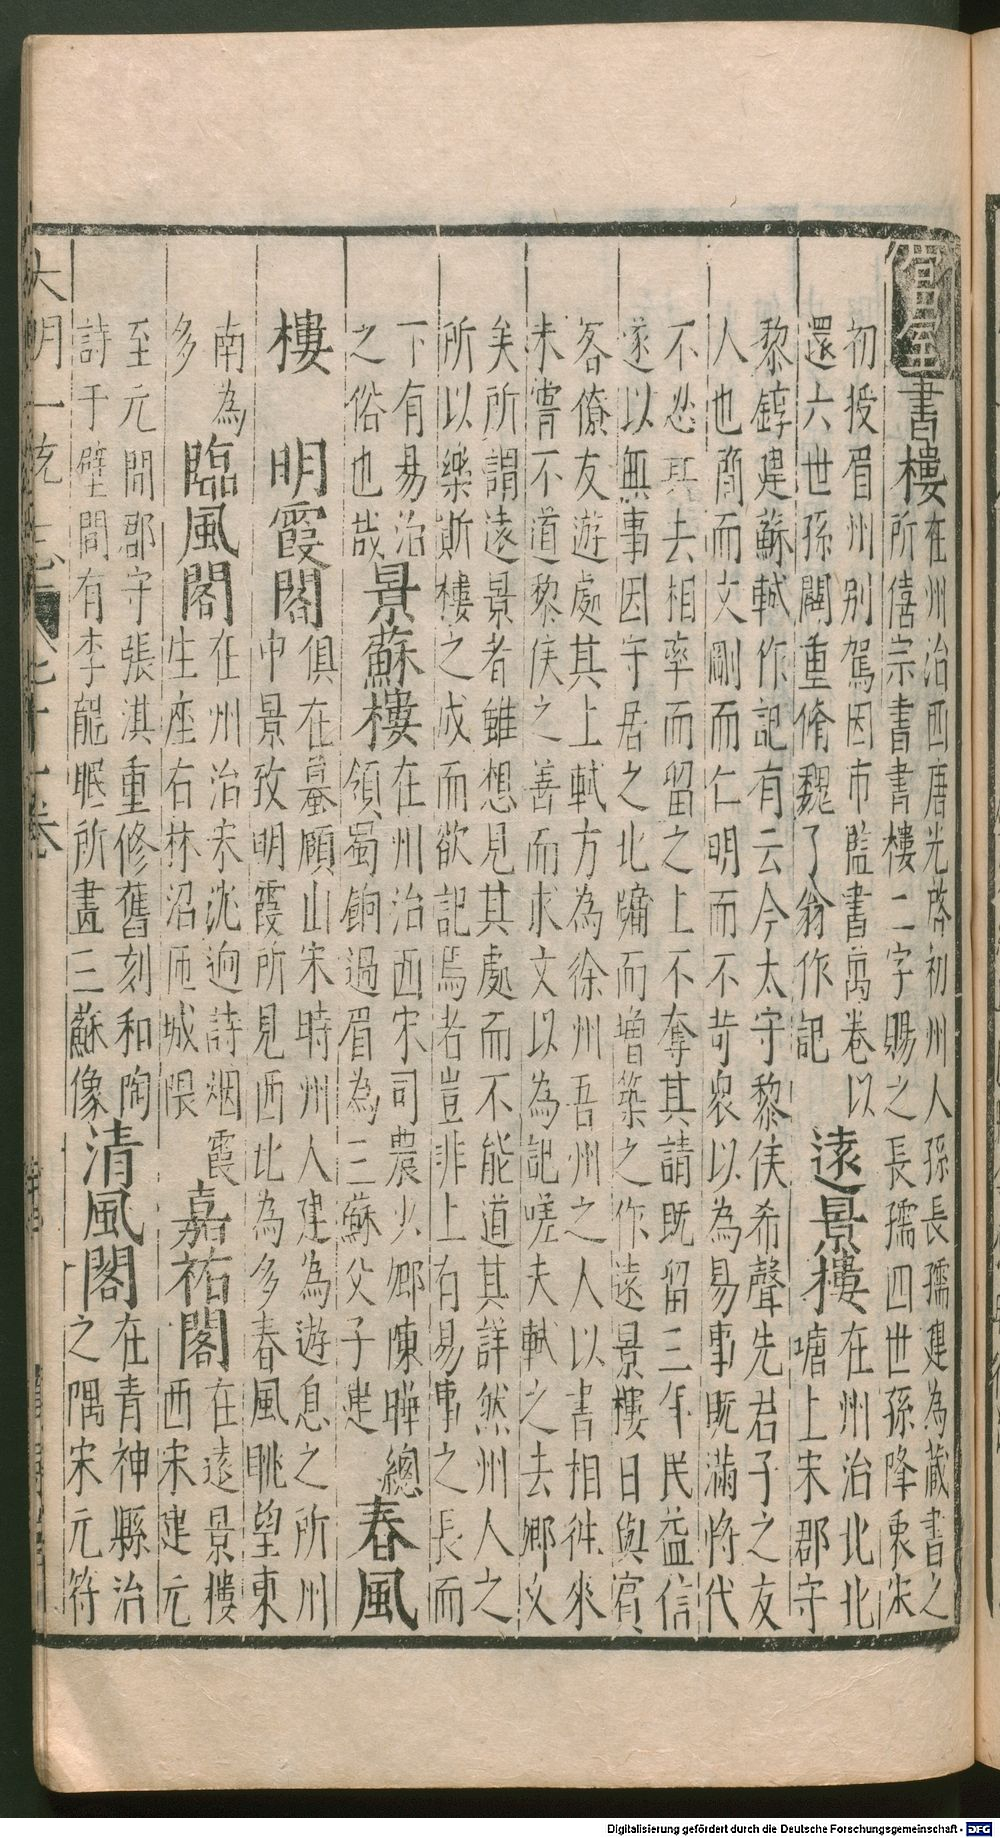 宮室
書樓
在州治西唐光啓初州人孫長孺建為藏書之
所僖宗書書樓二字賜之長孺四世孫降衷宋
初授眉州別駕因市監書萬卷以
還六世孫闢重脩魏了翁作記
遠景樓
在州治北北
塘上宋郡守
黎錞建蘇軾作記有云今太守黎侯希聲先君子之友
人也簡而文剛而仁明而不苛衆以為易事既滿將代
不忍其去相率而留之上不奪其請既留三年民益信
遂以無事因守居之北墉而增築之作遠景樓日與賓
客僚友遊處其上軾方為徐州吾州之人以書相徃來
未嘗不道黎侯之善而求文以為記嗟夫軾之去鄉久
矣所謂遠景者雖想見其處而不能道其詳然州人之
所以樂斯樓之成而欲記焉者豈非上有易事之長而
下有易治
之俗也哉
景蘇樓
在州治西宋司農少卿陳曄總
領蜀餉過眉為三蘇父子建
春風
樓
明霞閣
俱在蟇頤山宋時州人建為遊息之所州
中景致明霞所見西北為多春風眺望東
南為
多
臨風閣
在州治宋沈逈詩烟霞
生座右林沼匝城隈
嘉祐閣
在遠景樓
西宋建元
至元間郡守張淇重修舊刻和陶
詩于壁間有李龍眠所畫三蘇像
清風閣
在青神縣治
之隅宋元符
大明一統志
七十一卷